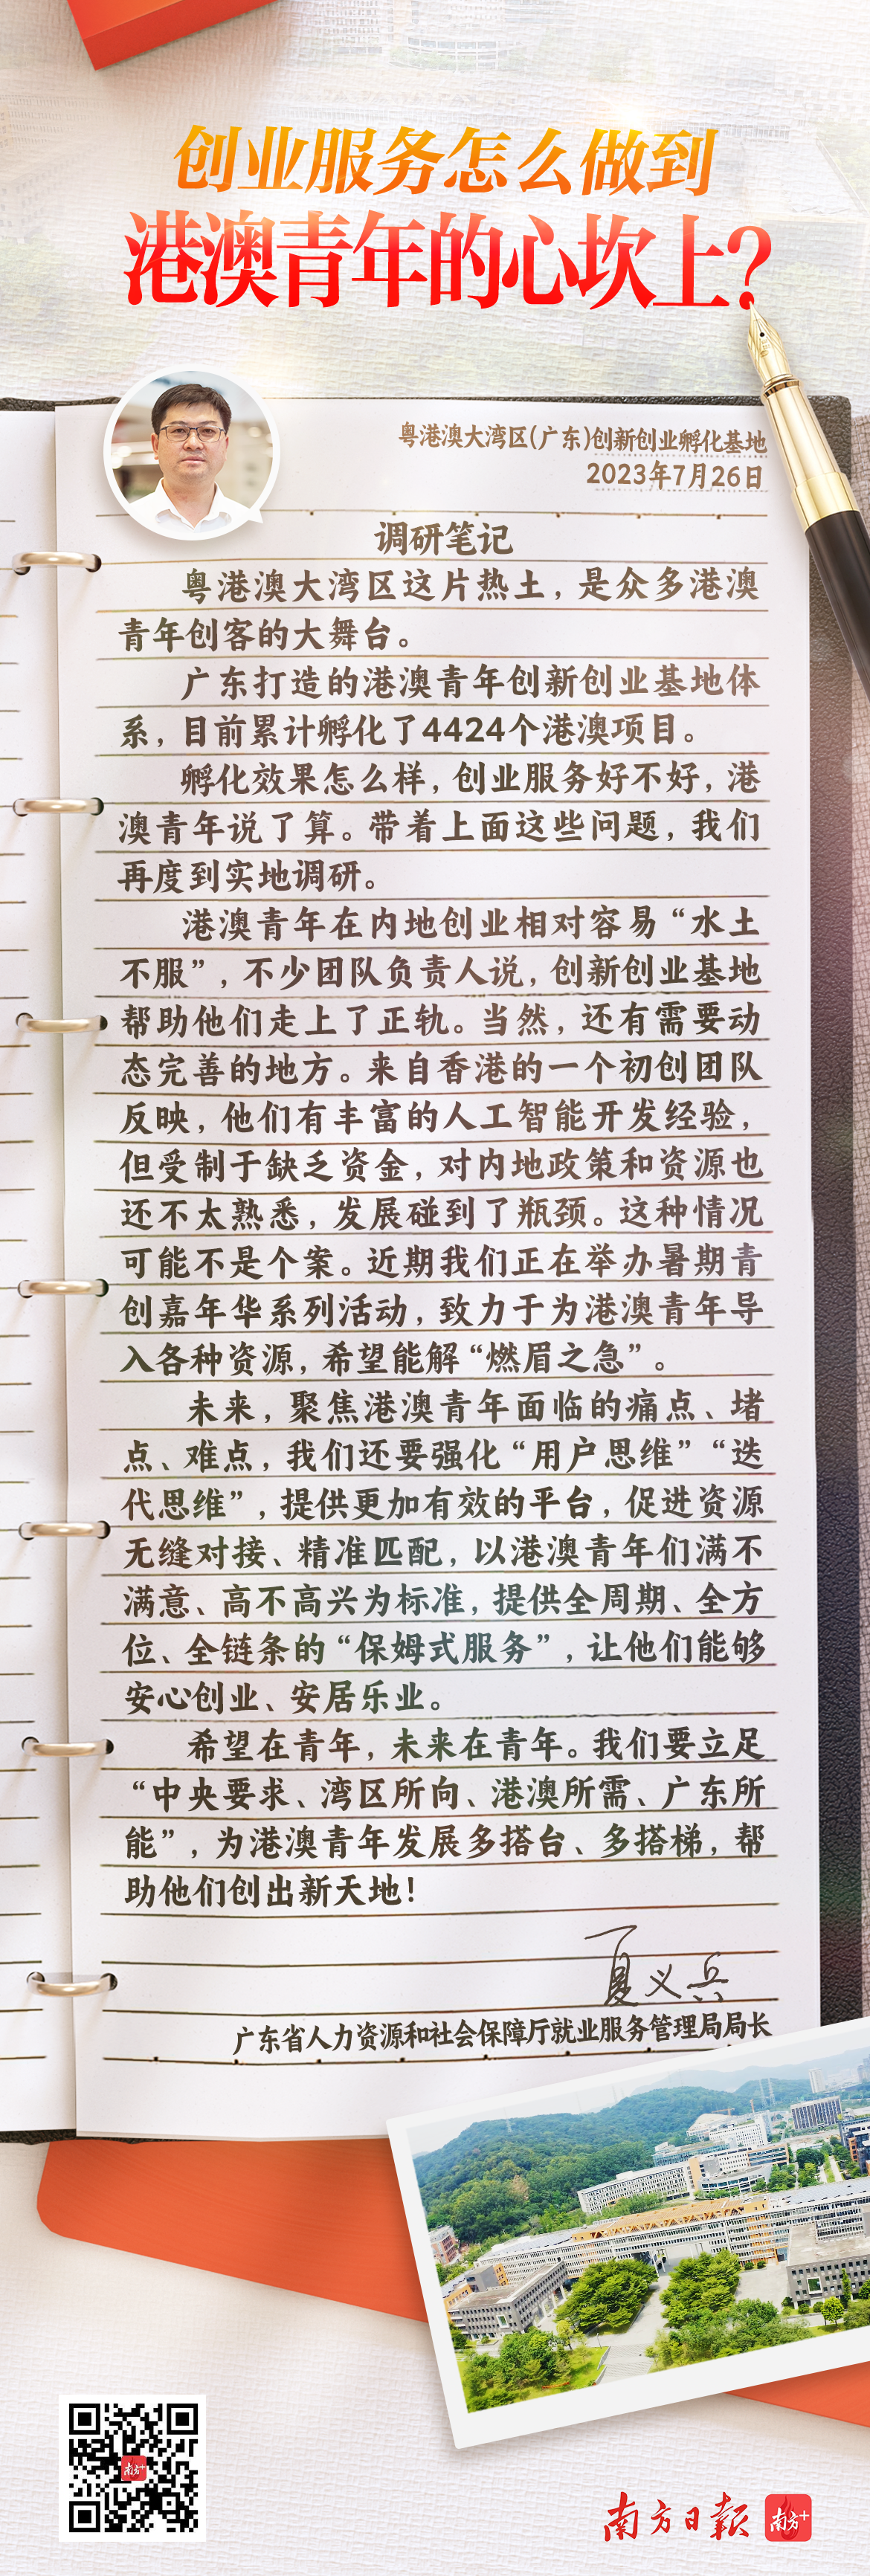 创业服务怎么做到
港澳青年的心坎上?
粤港澳大湾区(广东)创新创业孵化基地
2023年7月26日
调研笔记
粤港澳大湾区这片热土，是众多港澳
青年创客的大舞台。
广东打造的港澳青年创新创业基地体
系，目前累计孵化了4424个港澳项目。
孵化效果怎么样，创业服务好不好，港
澳青年说了算。带着上面这些问题，我们
再度到实地调研。
港澳青年在内地创业相对容易“水土
不服”，不少团队负责人说，创新创业基地
帮助他们走上了正轨。当然，还有需要动
态完善的地方。来自香港的一个初创团队
反映，他们有丰富的人工智能开发经验，
但受制于缺乏资金，对内地政策和资源也
还不太熟悉，发展碰到了瓶颈。这种情况
可能不是个案。近期我们正在举办暑期青
创嘉年华系列活动，致力于为港澳青年导
入各种资源，希望能解“燃眉之急”。
未来，聚焦港澳青年面临的痛点、堵
点、难点，我们还要强化“用户思维”“迭
代思维”，提供更加有效的平台，促进资源
无缝对接、精准匹配，以港澳青年们满不
满意、高不高兴为标准，提供全周期、全方
位、全链条的“保姆式服务”，让他们能够
安心创业、安居乐业。
希望在青年，未来在青年。我们要立足
“中央要求、湾区所向、港澳所需、广东所
能”，为港澳青年发展多搭台、多搭梯，帮
助他们创出新天地！
夏义兵
广东省人力资源和社会保障厅就业服务管理局局长
南方+
南方日报 南方+